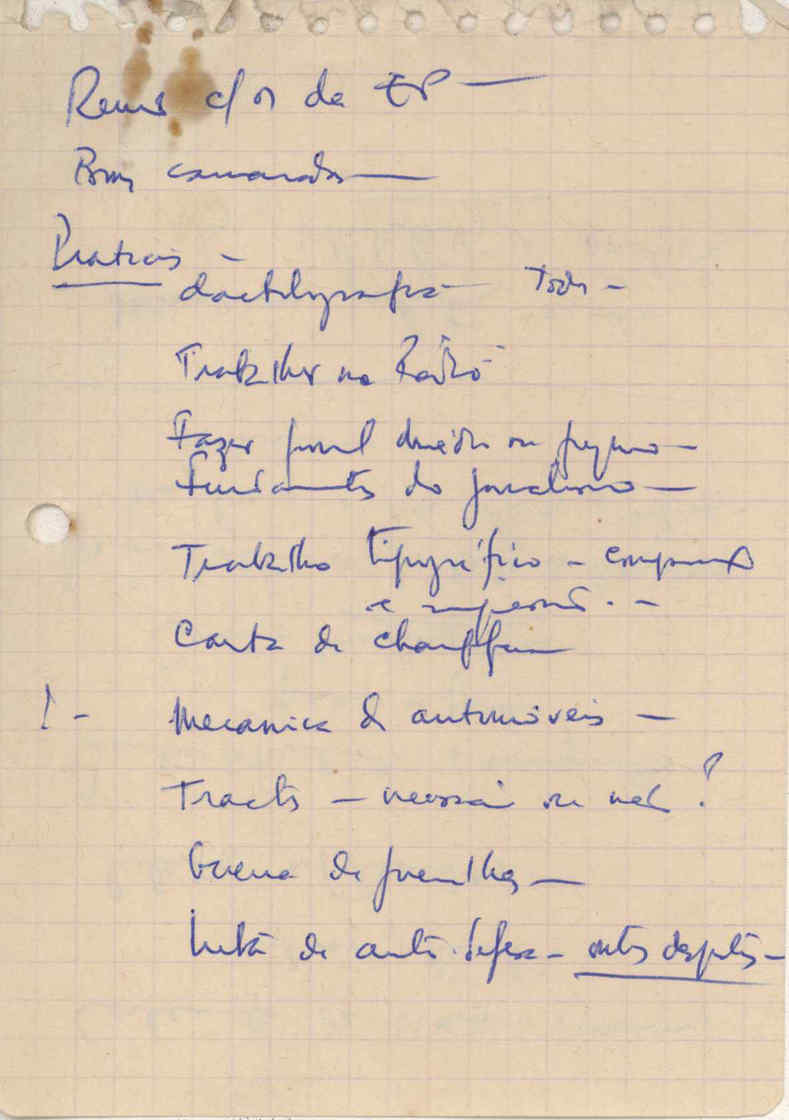 c/ os da EP —
Bons camaradas —
Praticas —
dactilografia — Todos —
Trabalho na Rádio
Fazer jornal diário ou pequeno —
Fundamentos do jornalismo —
Trabalho tipográfico — composição
e impressão. —
Carta de chauffeur
! — Mecanica de automóveis —
Tracts — necessário ou não?
Guerra de guerrilhas —
Luta de auto-defesa — outros desportos —